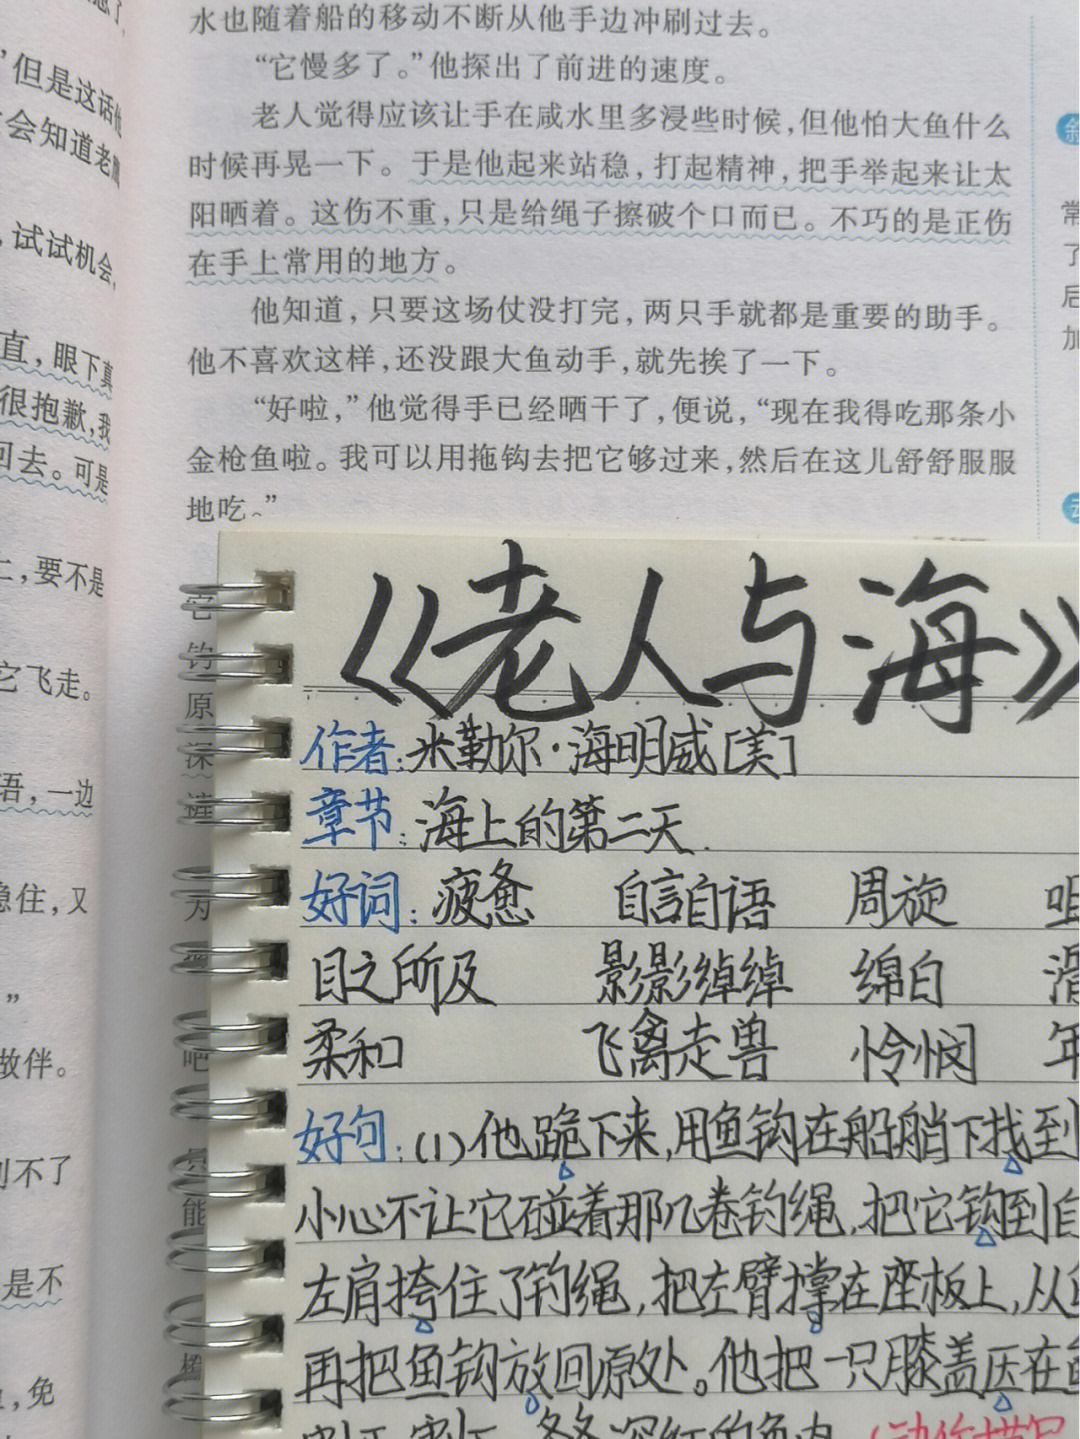 水也随着船的移动不断从他手边冲刷过去。
“它慢多了。”他探出了前进的速度。
老人觉得应该让手在咸水里多浸些时候，但他怕大鱼什么
时候再晃一下。于是他起来站稳，打起精神，把手举起来让太
阳晒着。这伤不重，只是给绳子擦破个口而已。不巧的是正伤
在手上常用的地方。
他知道，只要这场仗没打完，两只手就都是重要的助手。
他不喜欢这样，还没跟大鱼动手，就先挨了一下。
“好啦，”他觉得手已经晒干了，便说，“现在我得吃那条小
金枪鱼啦。我可以用拖钩去把它够过来，然后在这儿舒舒服服
地吃。”
”但是这话他
会知道老
，试试机会，
直，眼下真
很抱歉，我
回去。可是
二，要不是
它飞走。
语，一边
稳住，又
”
故伴。
别不了
是不
，免
常
了
后
加
它
钓
原
深
裤
方
吧
能
《老人与海》
作者：米勒尔·海明威[美]
章节：海上的第二天.
好词：疲惫 自言自语 周旋 咀
目之所及 影影绰绰 绵白 滑
柔和 飞禽走兽 怜悯 年
好句：(1)他跪下来，用鱼钩在船艄下找到
小心不让它碰着那几卷钓绳，把它钩到自
左肩挎住了钓绳，把左臂撑在座板上，从
再把鱼钩放回原处。他把一只膝盖压在鱼
深红的鱼肉（动作描写